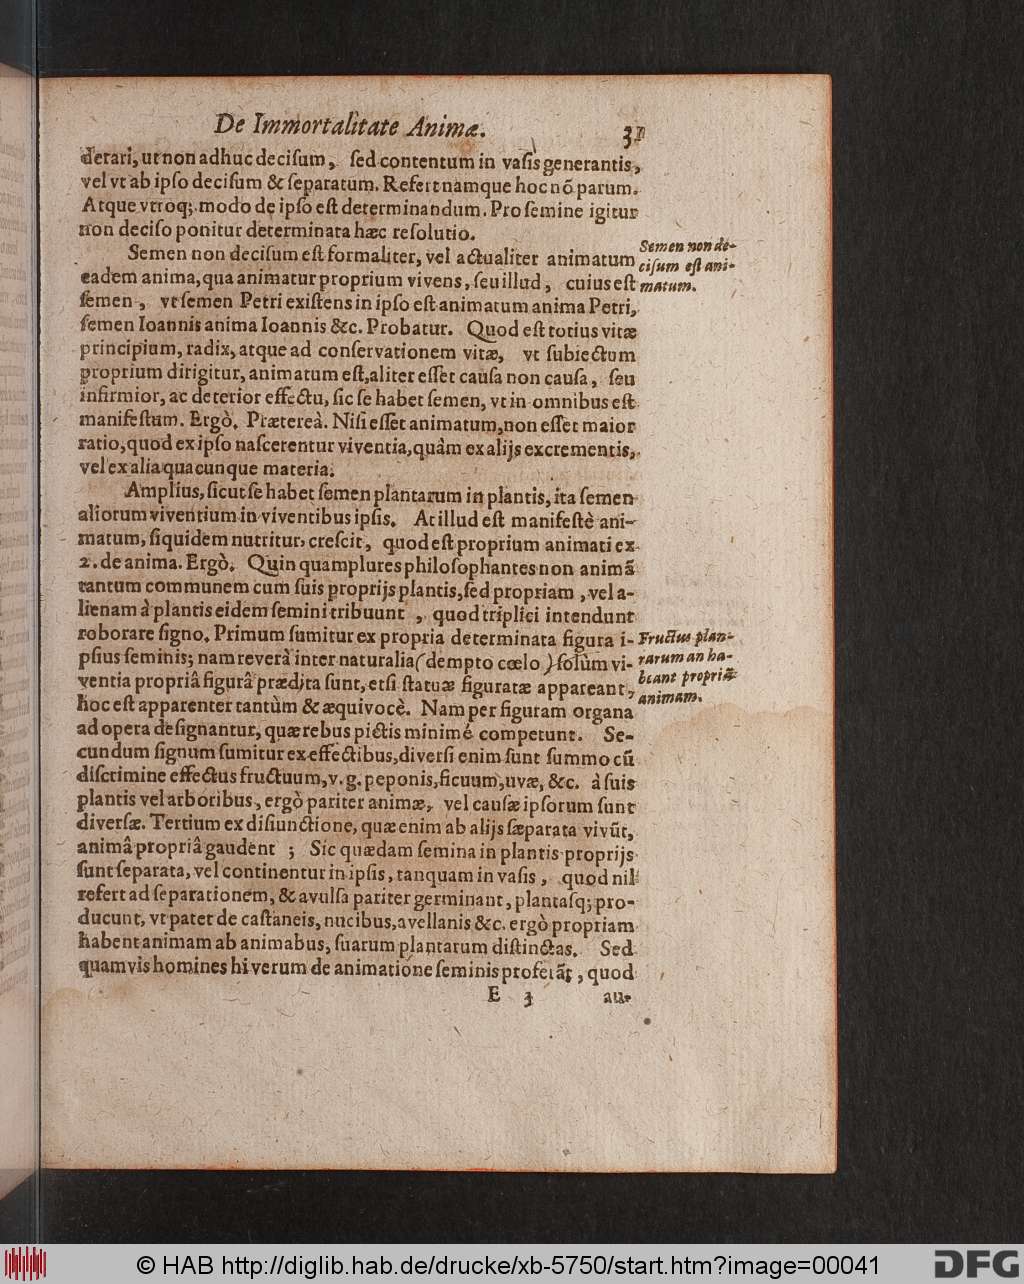 De Immortalitate Animæ.
derari, ut non adhuc deciſum, ſed contentum in vaſis generantis,
vel vt ab ipſo deciſum & ſeparatum. Refert namque hoc nõ parum.
Atque vtroq; modo de ipſo eſt determinandum. Pro ſemine igitur
non deciſo ponitur determinata hæc reſolutio.
Semen non deciſum eſt formaliter, vel actualiter animatum
eadem anima, qua animatur proprium vivens, ſeu illud, cuius eſt
ſemen, vt ſemen Petri exiſtens in ipſo eſt animatum anima Petri,
ſemen Ioannis anima Ioannis &c. Probatur. Quod eſt totius vitæ
principium, radix, atque ad conſervationem vitæ, vt ſubiectum
proprium dirigitur, animatum eſt, aliter eſſet cauſa non cauſa, ſeu
infirmior, ac deterior effectu, ſic ſe habet ſemen, vt in omnibus eſt
manifeſtum. Ergò. Prætereà. Niſi eſſet animatum, non eſſet maior
ratio, quod ex ipſo naſcerentur viventia, quàm ex alijs excrementis,
vel ex alia quacunque materia.
Amplius, ſicut ſe habet ſemen plantarum in plantis, ita ſemen
aliorum viventium in viventibus ipſis. At illud eſt manifeſtè ani-
matum, ſiquidem nutritur, creſcit, quod eſt proprium animati ex
2. de anima. Ergò. Quin quamplures philoſophantes non animã
tantum communem cum ſuis proprijs plantis, ſed propriam, vel a-
lienam à plantis eidem ſemini tribuunt, quod triplici intendunt
roborare ſigno. Primum ſumitur ex propria determinata figura i-
pſius ſeminis; nam reverà inter naturalia (dempto cœlo) ſolùm vi-
ventia propriâ figurâ prædita ſunt, etſi ſtatuæ figuratæ appareant,
hoc eſt apparenter tantùm & æquivocè. Nam per figuram organa
ad opera deſignantur, quæ rebus pictis minimé competunt. Se-
cundum ſignum ſumitur ex effectibus, diverſi enim ſunt ſummo cũ
diſcrimine effectus fructuum, v. g. peponis, ficuum, uvæ, &c. à ſuis
plantis vel arboribus, ergò pariter animæ, vel cauſæ ipſorum ſunt
diverſæ. Tertium ex diſiunctione, quæ enim ab alijs ſæparata vivũt,
animâ propriâ gaudent; Sic quædam ſemina in plantis proprijs
ſunt ſeparata, vel continentur in ipſis, tanquam in vaſis, quod nil
refert ad ſeparationem, & avulſa pariter germinant, plantaſq; pro-
ducunt, vt patet de caſtaneis, nucibus, avellanis &c. ergò propriam
habent animam ab animabus, ſuarum plantarum diſtinctas. Sed
quamvis homines hi verum de animatione ſeminis proferãt, quod
E 3 au-
Semen non de-
ciſum eſt ani-
matum.
Fructus plan-
tarum an ha-
beant propriã
animam.
© HAB http://diglib.hab.de/drucke/xb-5750/start.htm?image=00041
DFG